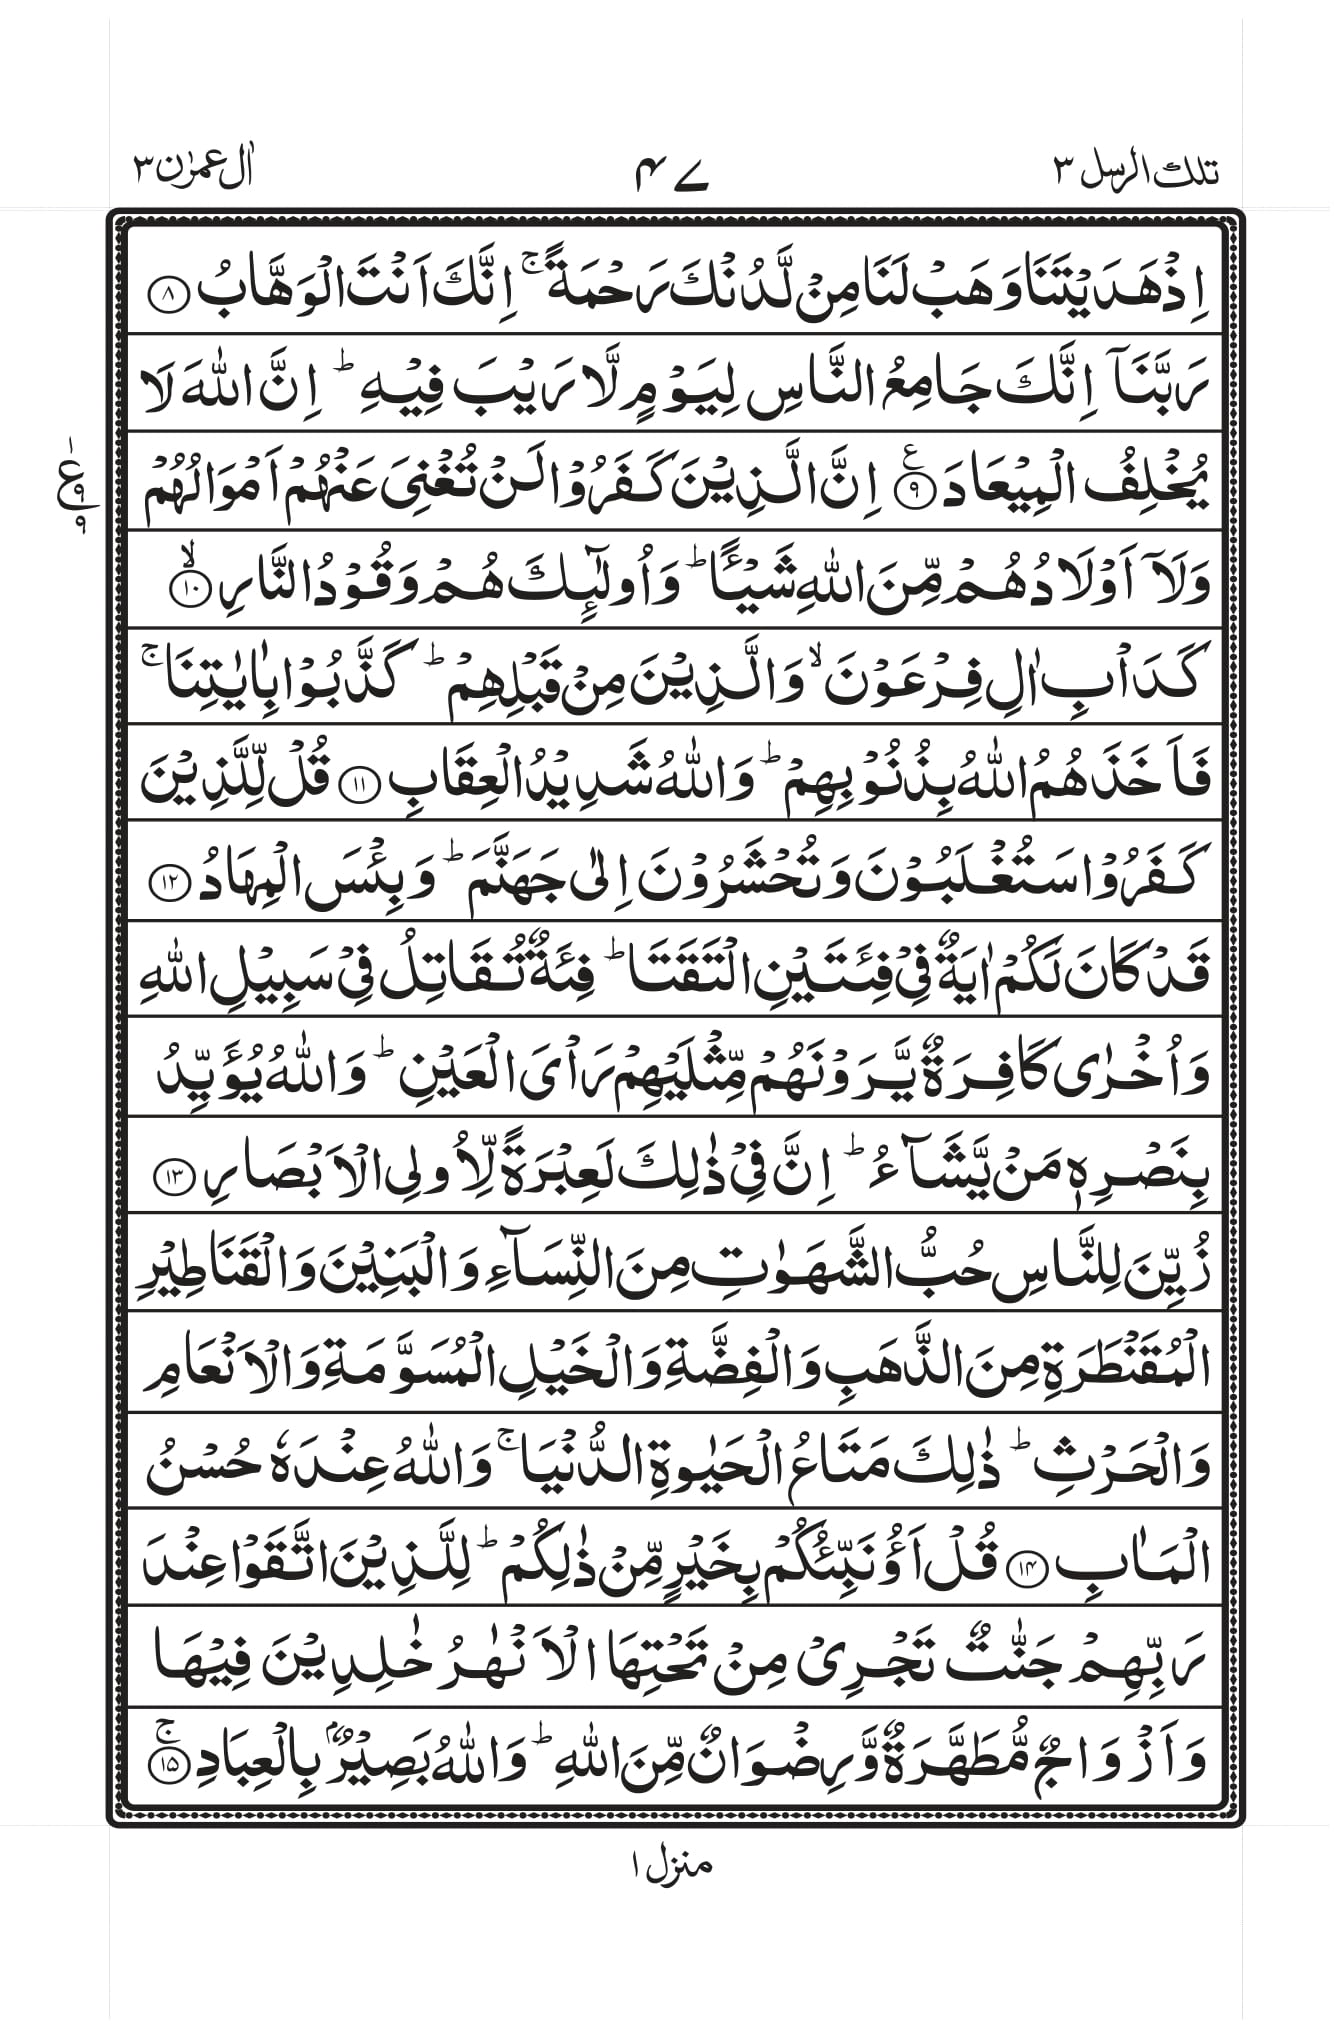 تلك الرسل ٣
٤٧
اٰل عمرٰن ٣
اِذْ هَدَيْتَنَا وَهَبْ لَنَا مِنْ لَّدُنْكَ رَحْمَةً ۚ اِنَّكَ اَنْتَ الْوَهَّابُ ۝٨
رَبَّنَاۤ اِنَّكَ جَامِعُ النَّاسِ لِيَوْمٍ لَّا رَيْبَ فِيْهِ ؕ اِنَّ اللّٰهَ لَا
يُخْلِفُ الْمِيْعَادَ ۝٩ ع اِنَّ الَّذِيْنَ كَفَرُوْا لَنْ تُغْنِیَ عَنْهُمْ اَمْوَالُهُمْ
١ ع ٩ ٩
وَلَاۤ اَوْلَادُهُمْ مِّنَ اللّٰهِ شَيْـًٔا ؕ وَاُولٰٓئِكَ هُمْ وَقُوْدُ النَّارِ ۝١٠ ۙ
كَدَاْبِ اٰلِ فِرْعَوْنَ ۙ وَالَّذِيْنَ مِنْ قَبْلِهِمْ ؕ كَذَّبُوْا بِاٰيٰتِنَا ۚ
فَاَخَذَهُمُ اللّٰهُ بِذُنُوْبِهِمْ ؕ وَاللّٰهُ شَدِيْدُ الْعِقَابِ ۝١١ قُلْ لِّلَّذِيْنَ
كَفَرُوْا سَتُغْلَبُوْنَ وَتُحْشَرُوْنَ اِلٰى جَهَنَّمَ ؕ وَبِئْسَ الْمِهَادُ ۝١٢
قَدْ كَانَ لَكُمْ اٰيَةٌ فِیْ فِئَتَيْنِ الْتَقَتَا ؕ فِئَةٌ تُقَاتِلُ فِیْ سَبِيْلِ اللّٰهِ
وَاُخْرٰى كَافِرَةٌ يَّرَوْنَهُمْ مِّثْلَيْهِمْ رَاْیَ الْعَيْنِ ؕ وَاللّٰهُ يُؤَيِّدُ
بِنَصْرِهٖ مَنْ يَّشَآءُ ؕ اِنَّ فِیْ ذٰلِكَ لَعِبْرَةً لِّاُولِی الْاَبْصَارِ ۝١٣
زُيِّنَ لِلنَّاسِ حُبُّ الشَّهَوٰتِ مِنَ النِّسَآءِ وَالْبَنِيْنَ وَالْقَنَاطِيْرِ
الْمُقَنْطَرَةِ مِنَ الذَّهَبِ وَالْفِضَّةِ وَالْخَيْلِ الْمُسَوَّمَةِ وَالْاَنْعَامِ
وَالْحَرْثِ ؕ ذٰلِكَ مَتَاعُ الْحَيٰوةِ الدُّنْيَا ۚ وَاللّٰهُ عِنْدَهٗ حُسْنُ
الْمَاٰبِ ۝١٤ قُلْ اَؤُنَبِّئُكُمْ بِخَيْرٍ مِّنْ ذٰلِكُمْ ؕ لِلَّذِيْنَ اتَّقَوْا عِنْدَ
رَبِّهِمْ جَنّٰتٌ تَجْرِیْ مِنْ تَحْتِهَا الْاَنْهٰرُ خٰلِدِيْنَ فِيْهَا
وَاَزْوَاجٌ مُّطَهَّرَةٌ وَّرِضْوَانٌ مِّنَ اللّٰهِ ؕ وَاللّٰهُ بَصِيْرٌۢ بِالْعِبَادِ ۝١٥ ۚ
منزل ١